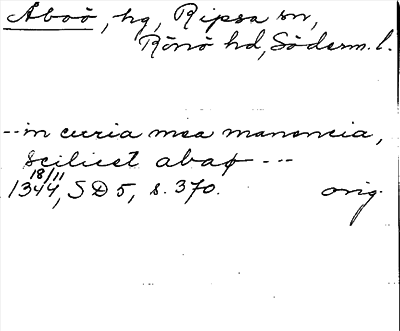 Aboö, hg, Ripsa sn,
Rönö hd, Söderm. l.
--in curia mea mansneia,
scilicet abaø ---
18/11
1344, SD 5, s. 370. orig.